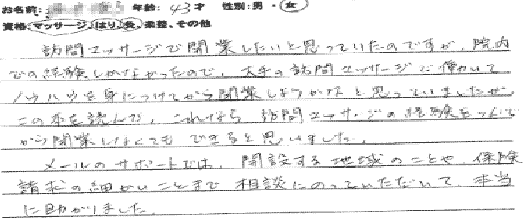 お名前: 年齢: 43才 性別:男・女
資格、マッサージ、はり、灸、柔整、その他
訪問マッサージで開業したいと思っていたのですが、院内
での経験しかなかったので、大手の訪問マッサージで働いて
ノウハウを身につけてから開業しようかなと思っていましたが、
この本を読んで、これなら訪問マッサージの経験をつんで
から開業しなくてもできると思いました。
メールのサポートでは、開設する地域のことや、保険
請求の細かいことまで相談にのっていただいて、本当
に助かりました。